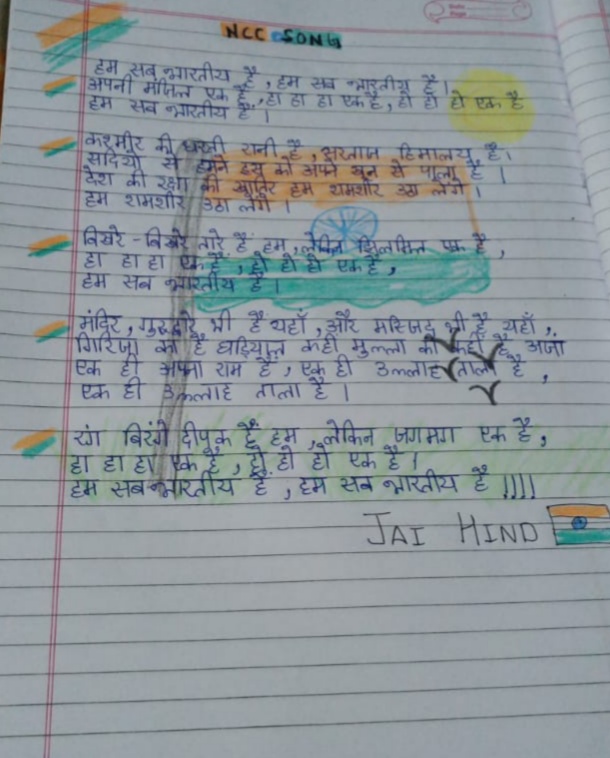 NCC SONG
हम सब भारतीय है, हम सब भारतीय है।
अपनी मंजिल एक है, हा हा हा एक है, हो हो हो एक है
हम सब भारतीय है।
कश्मीर की धरती रानी है, सरताज हिमालय है।
सदियो से हमने इस को अपने खून से पाला है।
देश की रक्षा की खातिर हम शमशीर उठा लेंगे।
हम शमशीर उठा लेंगे।
बिखरे-बिखरे तारे है हम, लेकिन झिलमिल एक है,
हा हा हा एक है, हो हो हो एक है,
हम सब भारतीय है।
मंदिर, गुरुद्वारे भी है यहाँ, और मस्जिद भी है यहाँ,
गिरिजा का है घड़ियाल कही मुल्ला की कही है अजा
एक ही अपना राम है, एक ही उल्लाह ताला है,
एक ही उल्लाह ताला है।
रंग बिरंगे दीपक है हम, लेकिन जगमग एक है,
हा हा हा एक है, हो हो हो एक है।
हम सब भारतीय है, हम सब भारतीय है ||||
JAI HIND